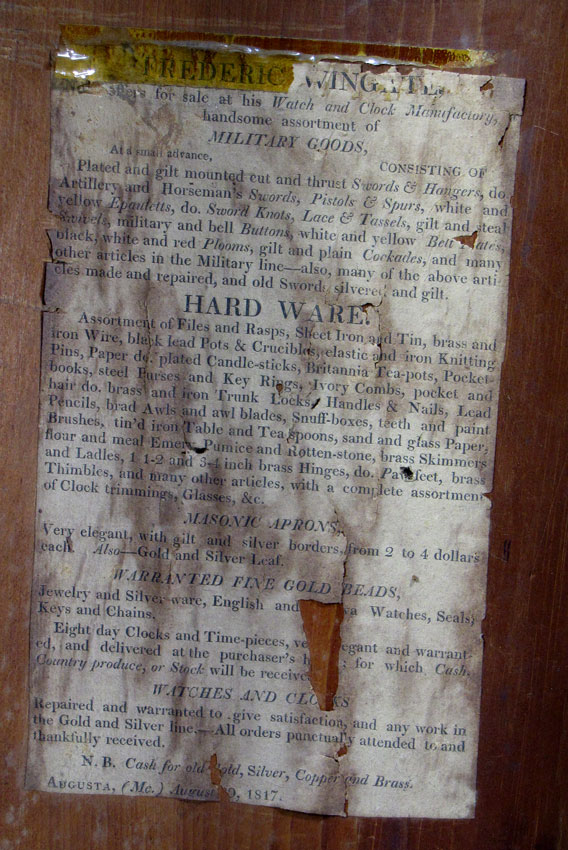 FREDERIC WINGATE,
for sale at his Watch and Clock Manufactory,
handsome assortment of
MILITARY GOODS,
At a small advance, CONSISTING OF
Plated and gilt mounted cut and thrust Swords & Hangers, do.
Artillery and Horseman's Swords, Pistols & Spurs, white and
yellow Epauletts, do. Sword Knots, Lace & Tassels, gilt and steel
Swivels, military and bell Buttons, white and yellow Belt
black, white and red Plooms, gilt and plain Cockades, and many
other articles in the Military line—also, many of the above arti-
cles made and repaired, and old Swords silvered and gilt.
HARD WARE.
Assortment of Files and Rasps, Sheet Iron and Tin, brass and
iron Wire, black lead Pots & Crucibles, elastic and iron Knitting
Pins, Paper do. plated Candle-sticks, Britannia Tea-pots, Pocket
books, steel Purses and Key Rings, Ivory Combs, pocket and
hair do. brass and iron Trunk Locks, Handles & Nails, Lead
Pencils, brad Awls and awl blades, Snuff-boxes, teeth and paint
Brushes, tin'd iron Table and Tea spoons, sand and glass Paper,
flour and meal Emery, Pumice and Rotten-stone, brass Skimmers
and Ladles, 1 1-2 and 3-4 inch brass Hinges, do. Paw feet, brass
Thimbles, and many other articles, with a complete assortment
of Clock trimmings, Glasses, &c.
MASONIC APRONS,
Very elegant, with gilt and silver borders, from 2 to 4 dollars
each. Also—Gold and Silver Leaf.
WARRANTED FINE GOLD BEADS,
Jewelry and Silver ware, English and Watches, Seals,
Keys and Chains.
Eight day Clocks and Time-pieces, very elegant and warrant-
ed, and delivered at the purchaser's for which Cash,
Country produce, or Stock will be received
WATCHES AND CLOCKS
Repaired and warranted to give satisfaction, and any work in
the Gold and Silver line.—All orders punctually attended to and
thankfully received.
N. B. Cash for old Gold, Silver, Copper and Brass.
AUGUSTA, (Me.) August 9, 1817.